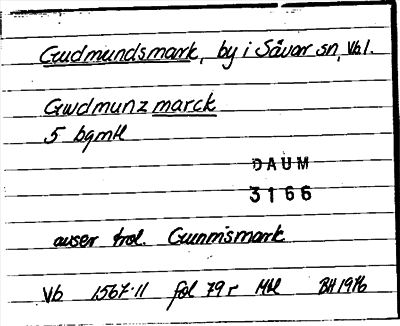 Gudmundsmark, by i Sävar sn, Vb l.
Gwdmunz marck
5 bgmtl
DAUM
3166
avser trol. Gunnismark
Vb 1567:11 fol 79r Mtl BH 1976